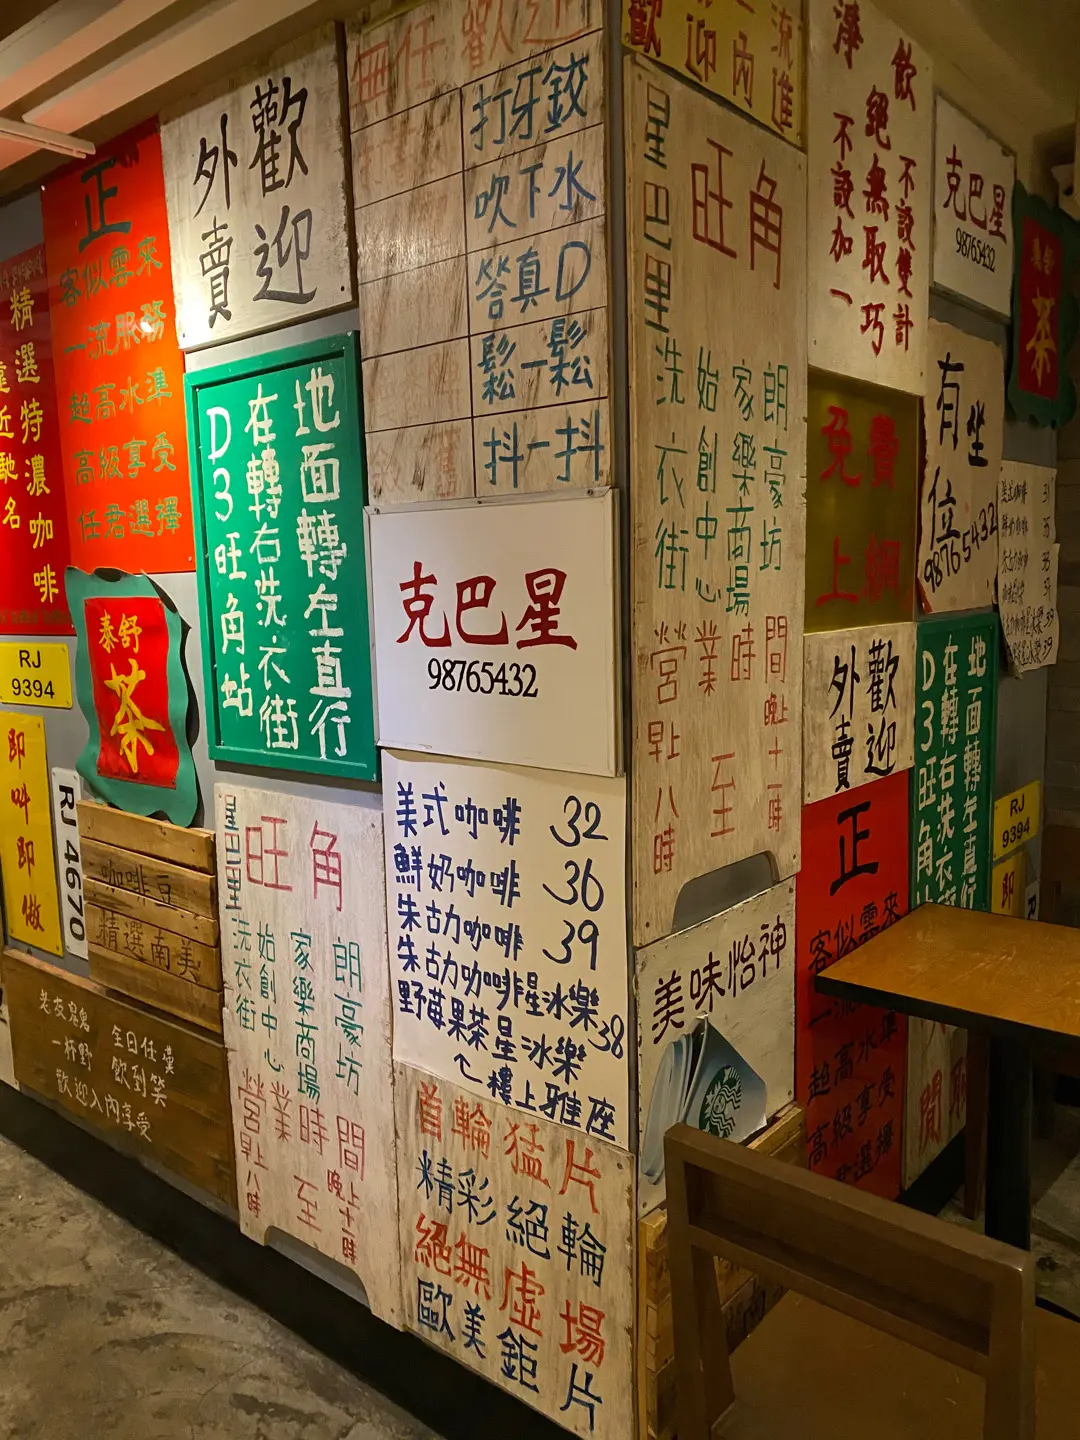 正
客似雲來
一流服務
超高水準
高級享受
任君選擇
精選特濃咖啡
遠近馳名
歡迎
外賣
地面轉左直行
在轉右洗衣街
D3旺角站
泰舒
茶
RJ
9394
即叫即做
RJ 4670
咖啡豆
精選南美
全日任奠
飲到笑
一杯野
歡迎入內享受
無任歡迎
打牙鉸
吹下水
答真D
鬆一鬆
抖一抖
克巴星
98765432
美式咖啡 32
鮮奶咖啡 36
朱古力咖啡 39
朱古力咖啡星冰樂
野莓果茶星冰樂 38
樓上雅座
首輪猛片
精彩絕輪
絕無虛場
歐美鉅片
星巴里
旺角
朗豪坊
家樂商場
始創中心
洗衣街
營業時間
早上八時
至
晚上十一時
星巴里
旺角
朗豪坊
家樂商場
始創中心
洗衣街
營業時間
早上八時
至
晚上十一時
美味怡神
歡迎內進
飲
淨
絕無取巧
不設雙計
不設加一
克巴星
98765432
泰舒
茶
有坐位
98765432
免費
上網
歡迎
外賣
地面轉左直行
在轉右洗衣
D3旺角
正
客似雲來
一流
超高水準
高級享受
君選擇
RJ
9394
即
美式咖啡